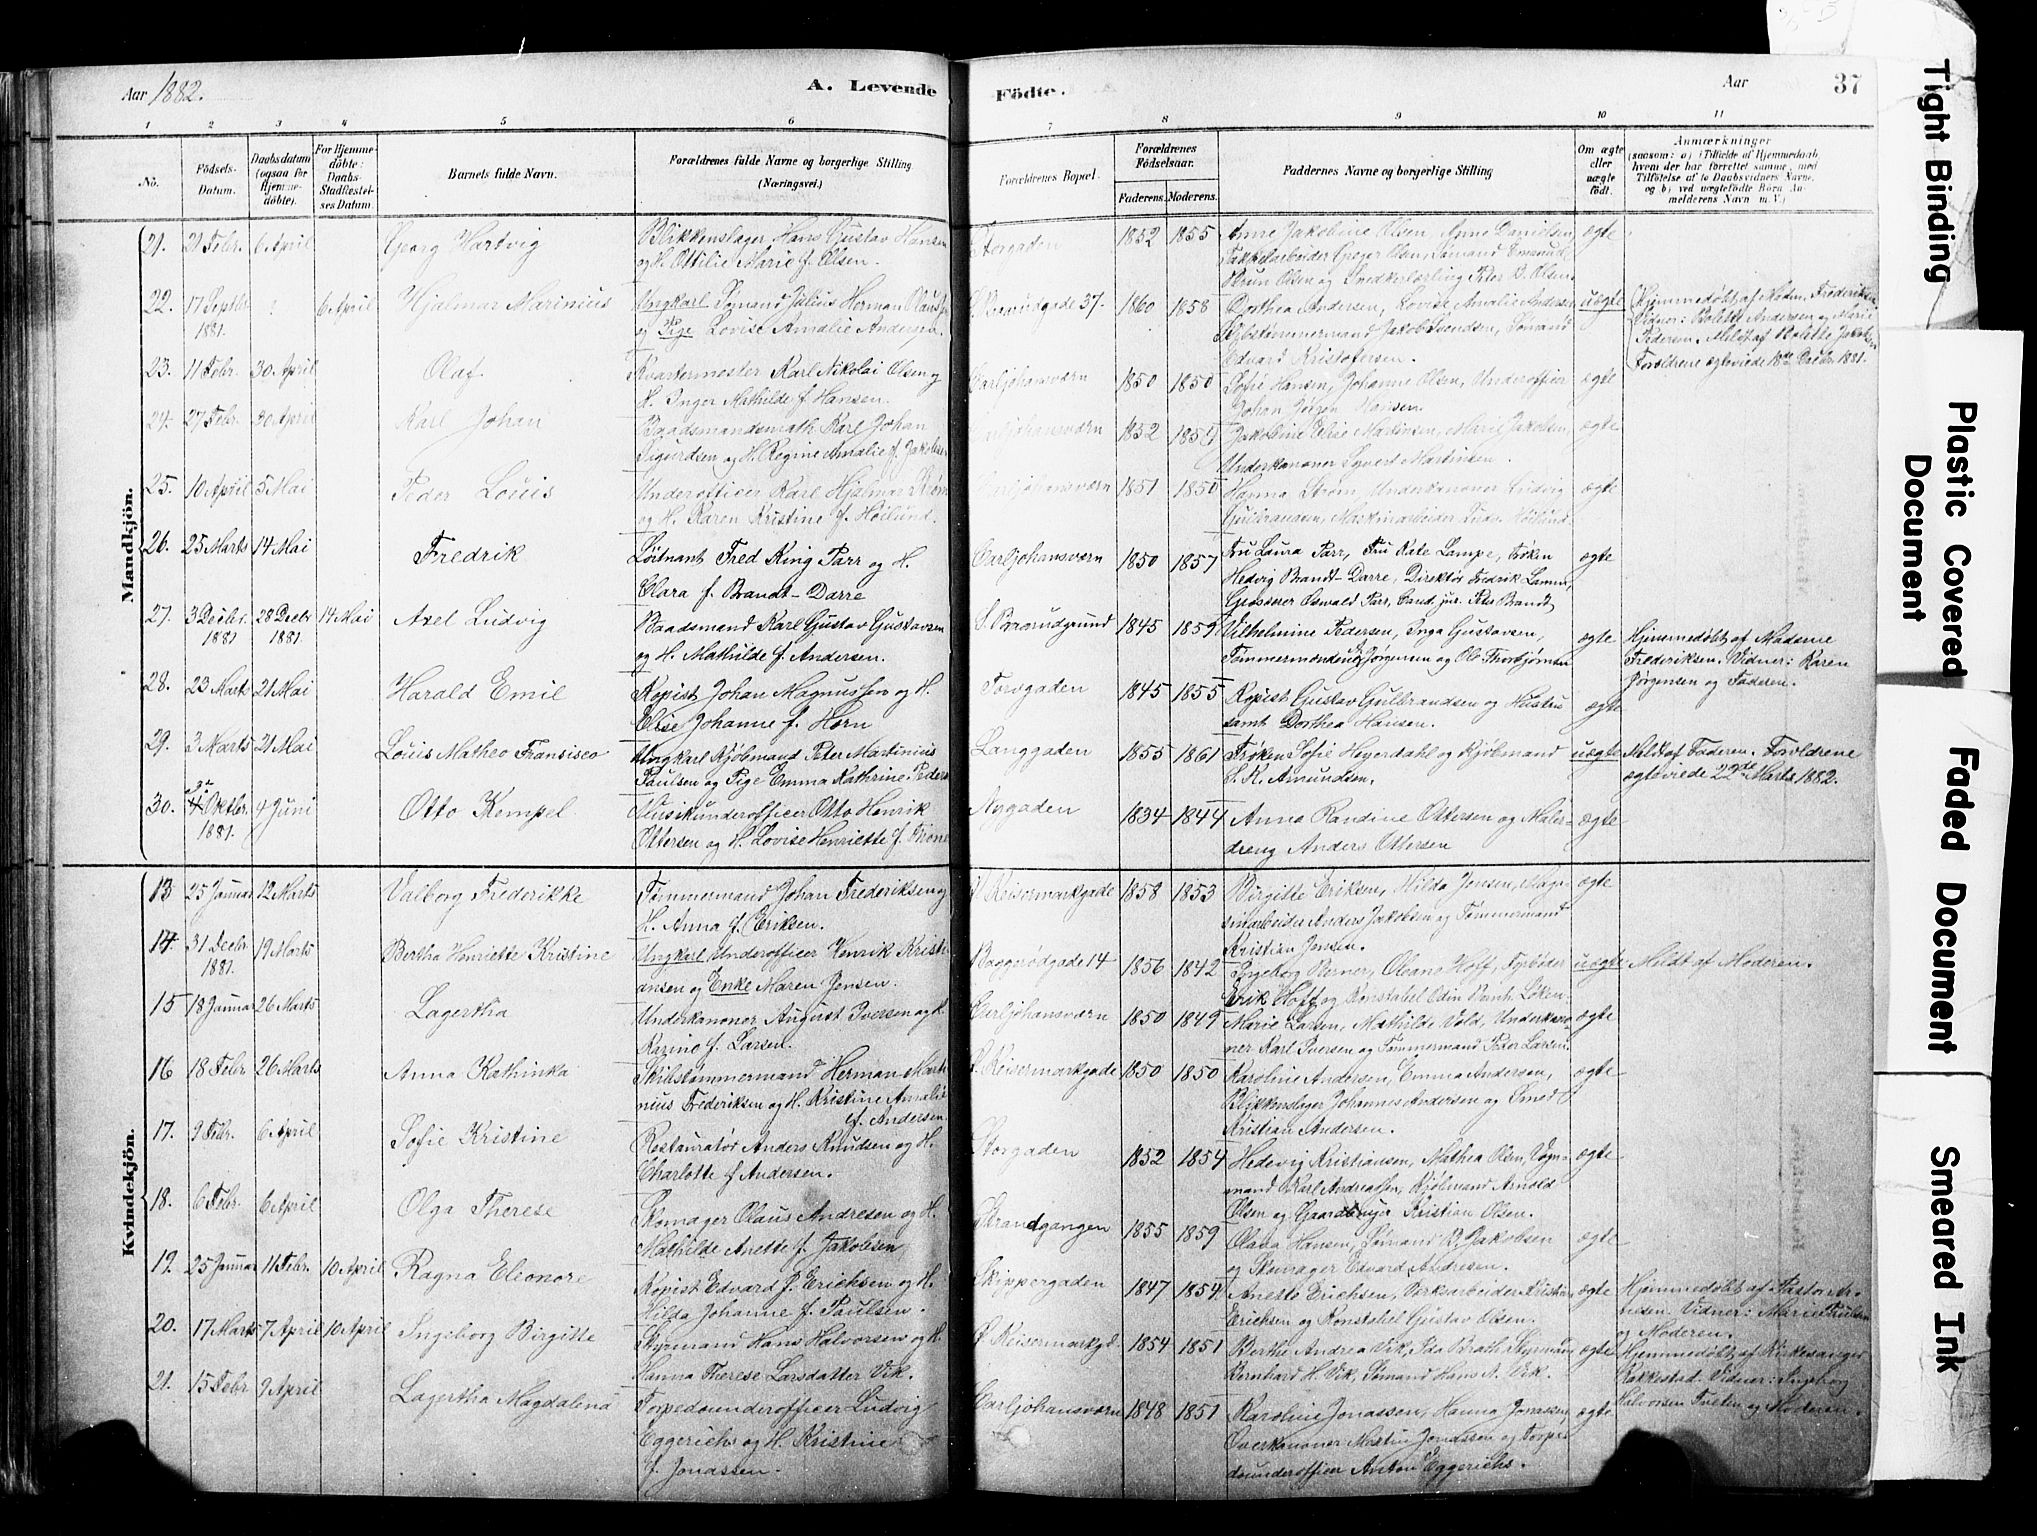 Aar 1882.
A. Levende
Födte.
Aar
37
1 2 3 4 5 6 7 8 9 10 11
No.
Födsels-Datum.
Daabsdatum (ogsaa for Hjemme-döbte).
For Hjemme-döbte: Daabs-Stadfæstel-ses Datum.
Barnets fulde Navn.
Forældrenes fulde Navne og borgerlige Stilling (Næringsvei.)
Forældrenes Bopæl.
Forældrenes Födselsaar.
Faderens. Moderens.
Faddernes Navne og borgerlige Stilling
Om ægte eller uægte födt.
Anmærkninger
(saasom: a) i Tilfælde af Hjemmedaab,
hvem der har forrettet samme, med
Tilföielse af to Daabsvidners Navne,
og b) ved uægtefödte Börn An-
melderens Navn m. V.)
Mandkjön.
21. 21 Febr. 6 April Georg Hartvig Blikkenslager Hans Gustav Hansen Storgaden 1852 1855 Anne Jakobine Olsen, Anne Danielsen ægte
og H. Ottilie Marie f. Olsen. Takkelarbeider Gregor Olsen, Sømand Emanuel
Brun Olsen og Snedkerlærling Peter B. Olsen
22. 17 Septbr. 1881. ? 6 April Hjalmar Marinius Ungkarl Sømand Julius Herman Olaussen 37. 1860 1858 Dorthea Andersen, Lovise Amalie Andersen uægte Hjemmedøbt af Madm. Frederiksen
og Pige Lovise Amalie Andersen. Skibstømmermand Jakob Svendsen, Sømand Vidner: Bolette Andersen og Marie
Edvard Kristofersen. Pedersen. Meldt af Bolette Jakobsen
Forældrene ægteviede 18de Decbr. 1881.
23. 11 Febr. 30 April Olaf Kvartermester Karl Nikolai Olsen og Carljohansværn 1850 1850 Sofie Hansen, Johanne Olsen, Underofficer ægte
H. Inger Mathilde f. Hansen. Johan Jörgen Hansen.
24. 27 Febr. 30 April Karl Johan Baadsmandsmath Karl Johan Carljohansværn 1852 Jakobine Elise Martinsen, Marie Jakobsen, ægte
Sigurdsen og H. Regine Amalie f. Jakobsen Underkanoner Syvert Martinsen.
25. 10 April 5 Mai Peder Louis Underofficer Karl Hjalmar Strøm Carljohansværn 1851 1850 Hanna Strøm, Underkanoner Ludvig ægte
og H. Karen Kristine f. Høilund. Gulbransen, Maskinarbeider Ludv. Høilund
26. 25 Marts 14 Mai Fredrik Løitnant Fred King Parr og H. Carljohansværn 1850 1857 Fru Laura Parr, Fru Kate Lampe, Frøken ægte
Clara f. Brandt-Darre Hedvig Brandt-Darre, Direktør Fredrik Lamm,
Grosserer Oswald Parr, Cand. jur. Peter Brandt
27. 3 Decbr. 1881 28 Decbr 1881. 14 Mai Axel Ludvig Baadsmand Karl Gustav Gustavsen 1845 1859 Vilhelmine Pedersen, Inga Gustavsen, ægte Hjemmedøbt af Madame
og H. Mathilde f. Andersen. Tømmermændene Jørgensen og Ole Thorbjørnsen Frederiksen. Vidner: Karen
Jørgensen og Faderen.
28. 23 Marts 21 Mai Harald Emil Kopist Johan Magnussen og H. Torvgaden 1845 1855 Kopist Gustav Gulbrandsen og Hustru ægte
Elise Johanne f. Horn samt Dorthea Hansen.
29. 3 Marts 21 Mai Louis Matheo Fransisco Ungkarl Kjøbmand Peter Martinius Langgaden 1855 1861 Frøken Sofie Heyerdahl og Kjøbmand uægte Meldt af Faderen. Forældrene
Paulsen og Pige Emma Kathrine Peders S. K. Amundsen. ægteviede 22de Marts 1882.
30. Oktbr. 1881. 4 Juni Otto Kempel Musikunderofficer Otto Henrik Nygaden 1834 1844 Anna Randine Ottersen og Maler- ægte
Ottersen og H. Lovise Henriette f. Throne dreng Anders Ottersen
Kvindekjön.
13 25 Januar 12 Marts Valborg Frederikke Tømmermand Johan Frederiksen og Keisermarkgade 1858 1853 Birgitte Eriksen, Hilda Jensen, Maga- ægte
H. Anna f. Eriksen. sinarbeider Anders Jakobsen og Tømmermand
Kristian Jensen.
14 31 Decbr 1881. 19 Marts Bertha Henriette Kristine Ungkarl Underofficer Henrik Kristi- 14 1856 1842 Ingeborg Berner, Oleane Hoff, Fyrbøder uægte Meldt af Moderen.
ansen og Enke Maren Jensen. Erik Hoff og Konstabel Odin Løken.
15 18 Januar 26 Marts Lagertha Underkanoner August Iversen og H. Carljohansværn 1850 1849 Marie Larsen, Mathilde Vold, Underkano- ægte
Karine f. Larsen. ner Karl Iversen og Tømmermand Peter Larsen.
16 18 Febr. 26 Marts Anna Kathinka Skibstømmermand Herman Marti- Keisermarkgade 1850 1850 Karoline Andersen, Emma Andersen, ægte
nius Frederiksen og H. Kristine Amalie Blikkenslager Johannes Andersen og Smed
f. Andersen Kristian Andersen.
17. 9 Febr. 6 April Sofie Kristine Restauratør Anders Knudsen og H. Storgaden 1852 1854 Hedevig Kristiansen, Mathea Olsen, Vogn- ægte
Charlotte f Andersen. mand Karl Andreassen, Kjøbmand Arnold
Olsen og Gaardbruger Kristian Olsen.
18. 6 Febr. 6 April Olga Therese Skomager Olaus Andresen og H. Strandgangen 1855 1859 Olava Hansen, Sømand B. Jakobsen ægte
Mathilde Anette f. Jakobsen og Skomager Edvard Andresen.
19. 25 Januar 11 Febr. 10 April Ragna Eleonore Kopist Edvard J. Erichsen og H. Skippergaden 1847 1854. Anette Erichsen, Verksarbeider Kristian ægte Hjemmedøbt af Pastor
Hilda Johanne f. Paulsen. Erichsen og Konstabel Gustav Olsen. Vidner: Marie Paulsen
og Moderen.
20. 17 Marts 7 April 10 April Ingeborg Birgitte Styrmand Hans Halvorsen og H. Keisermarkgd. 1854 1851 Berthe Andrea Vik, Ida Brath, Styrmand ægte Hjemmedøbt af Kirkesanger
Hanna Therese Larsdatter Vik. Bernhard H. Vik, Sømand Hans A. Vik. Rakkestad. Vidner: Ingeborg
Halvorsen Tveten og Moderen.
21. 15 Febr 9 April Lagertha Magdalena Torpedounderofficer Ludvig Carljohansværn 1848 1851 Karoline Jonassen, Hanna Jonassen, ægte
Eggerichs og H. Kristine Overkanoner Martin Jonassen og Torpe-
f. Jonassen. dounderofficer Anton Eggerichs.
Tight Binding
Plastic Covered Document
Faded Document
Smeared Ink